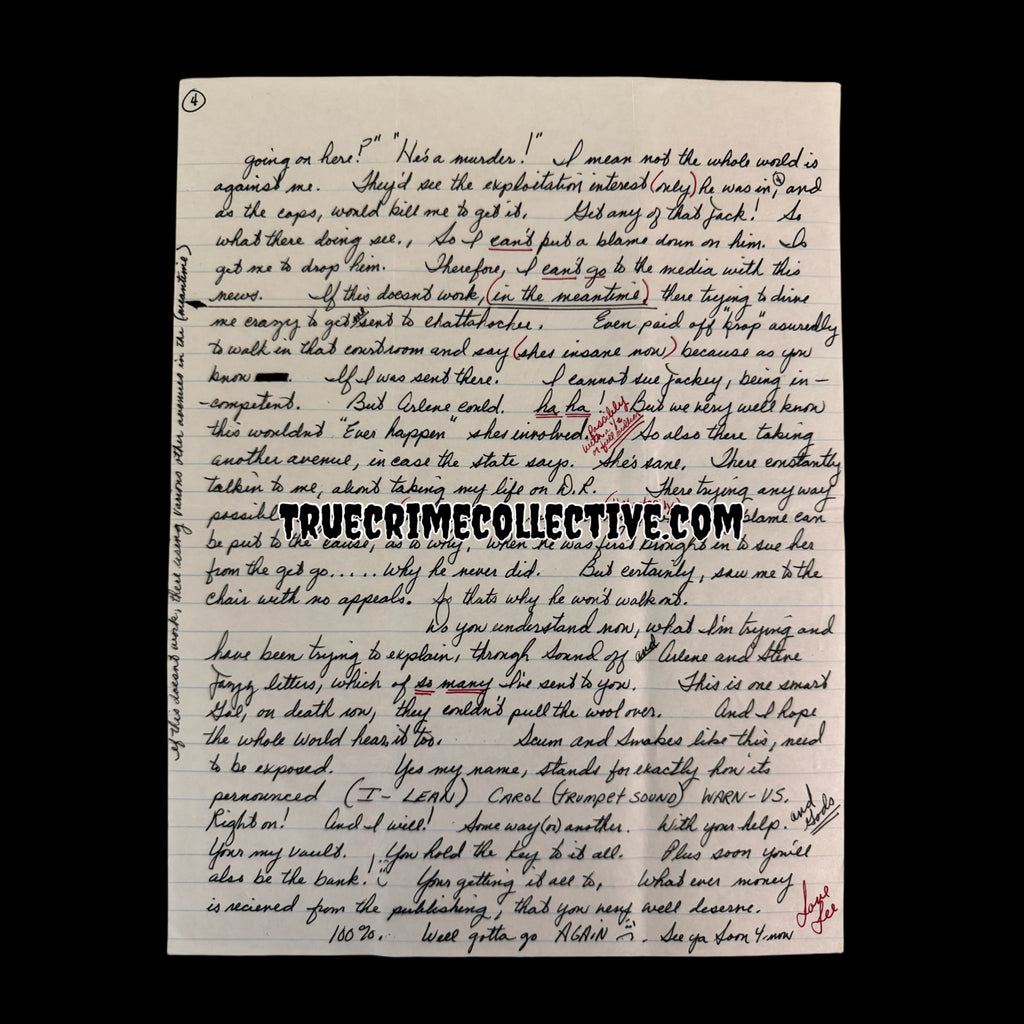 4
going on here?" "He's a murder!" I mean not the whole world is
against me. They'd see the exploitation interest (only) he was in, and
as the cops, would kill me to get it. Git any of that Jack! So
what there doing see., So I can't put a blame down on him. To
get me to drop him. Therefore, I can't go to the media with this
news. If this doesnt work, (in the meantime) there trying to drive
me crazy to get me sent to Chattahochee. Even paid off "krop" asuredly
to walk in that courtroom and say (shes insane now) because as you
know. If I was sent there. I cannot sue Jackey, being in-
-competent. But Arlene could. ha ha! But we very well know
this wouldnt "Ever happen" shes involved. So also there taking
Possibly
another avenue, in case the state says. She's sane. There constantly
talkin to me, about taking my life on D.R. There trying any way
TRUECRIMECOLLECTIVE.COM
blame can
be put to the cause, as to why, when he was first brought in to sue her
from the get go..... Why he never did. But certainly, saw me to the
chair with no appeals. So thats why he won't walk out.
Do you understand now, what I'm trying and
have been trying to explain, through Sound off and Arlene and Steve
Jazzy letters, which of so many I've sent to you. This is one smart
Gal, on death row, they couldn't pull the wool over. And I hope
the whole world hears it too. Scum and Snakes like this, need
to be exposed. Yes my name, stands for exactly how its
pernounced (I-LEAN) CAROL (TRUMPET SOUND) WARN-US.
Right on! And I will! Some way (or) another. With your help. and Gods
Your my vault. You hold the key to it all. Plus soon you'll
also be the bank! Your getting it all to, What ever money
is recieved from the publishing, that you very well deserve.
100%. Well gotta go AGAIN. See ya Soon 4-now
Love
Lee
if this doesnt work, there using various other avenues in the (meantime)